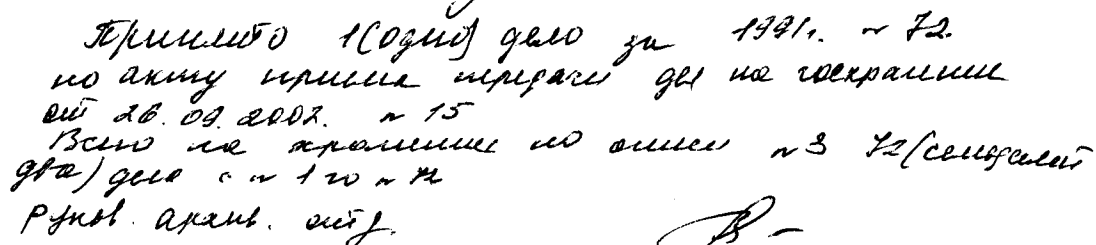 Принято 1(одно) дело за 1991г. № 72.
по акту приема передачи дел на госхранение
от 26.09.2002. № 15
Всего на хранении по описи № 3 72(семьдесят
два) дела с № 1 по № 72
Руков. архив. отд.